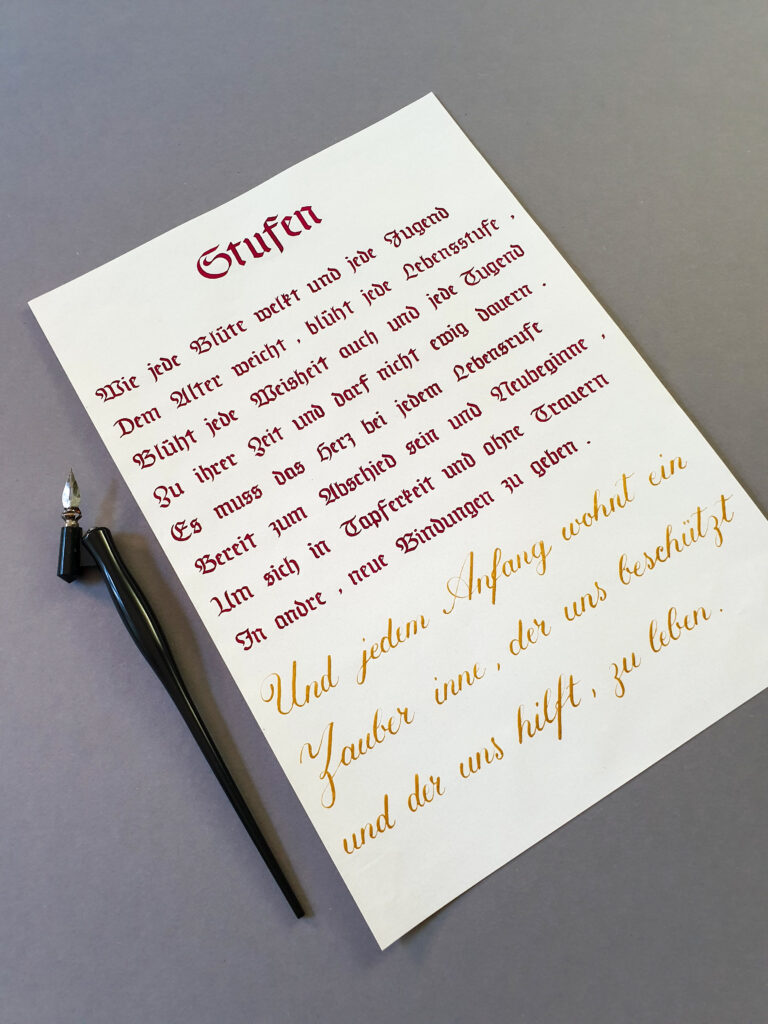 Stufen
Wie jede Blüte welkt und jede Jugend
Dem Alter weicht , blüht jede Lebensstufe ,
Blüht jede Weisheit auch und jede Tugend
Zu ihrer Zeit und darf nicht ewig dauern .
Es muss das Herz bei jedem Lebensrufe
Bereit zum Abschied sein und Neubeginne ,
Um sich in Tapferkeit und ohne Trauern
In andre , neue Bindungen zu geben .
Und jedem Anfang wohnt ein
Zauber inne , der uns beschützt
und der uns hilft , zu leben .